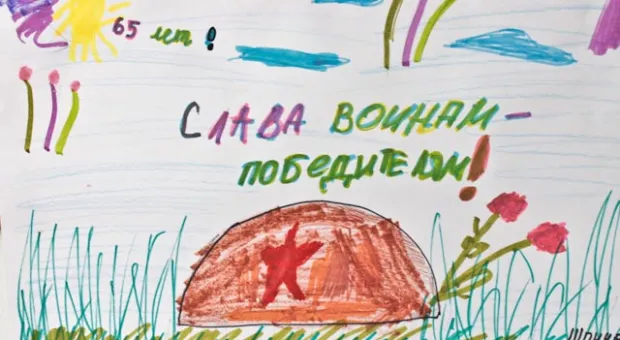 65 лет !
СЛАВА ВОИНАМ-
ПОБЕДИТЕЛЯМ!